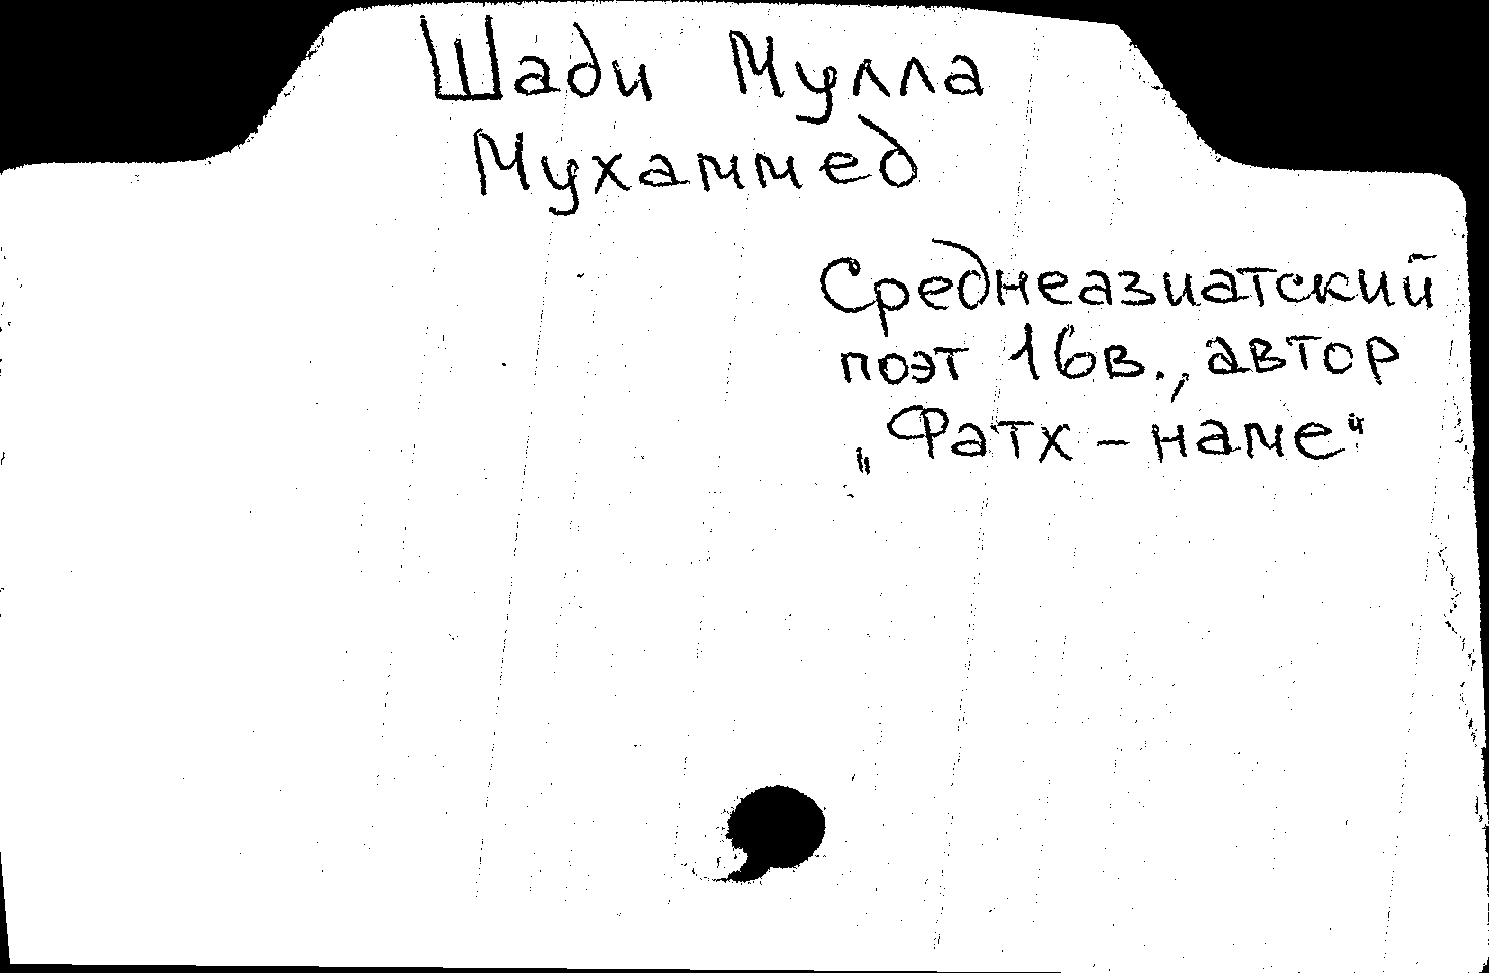 Шади Мулла
Мухаммед
Среднеазиатский
поэт 16в., автор
„Фатх - наме“